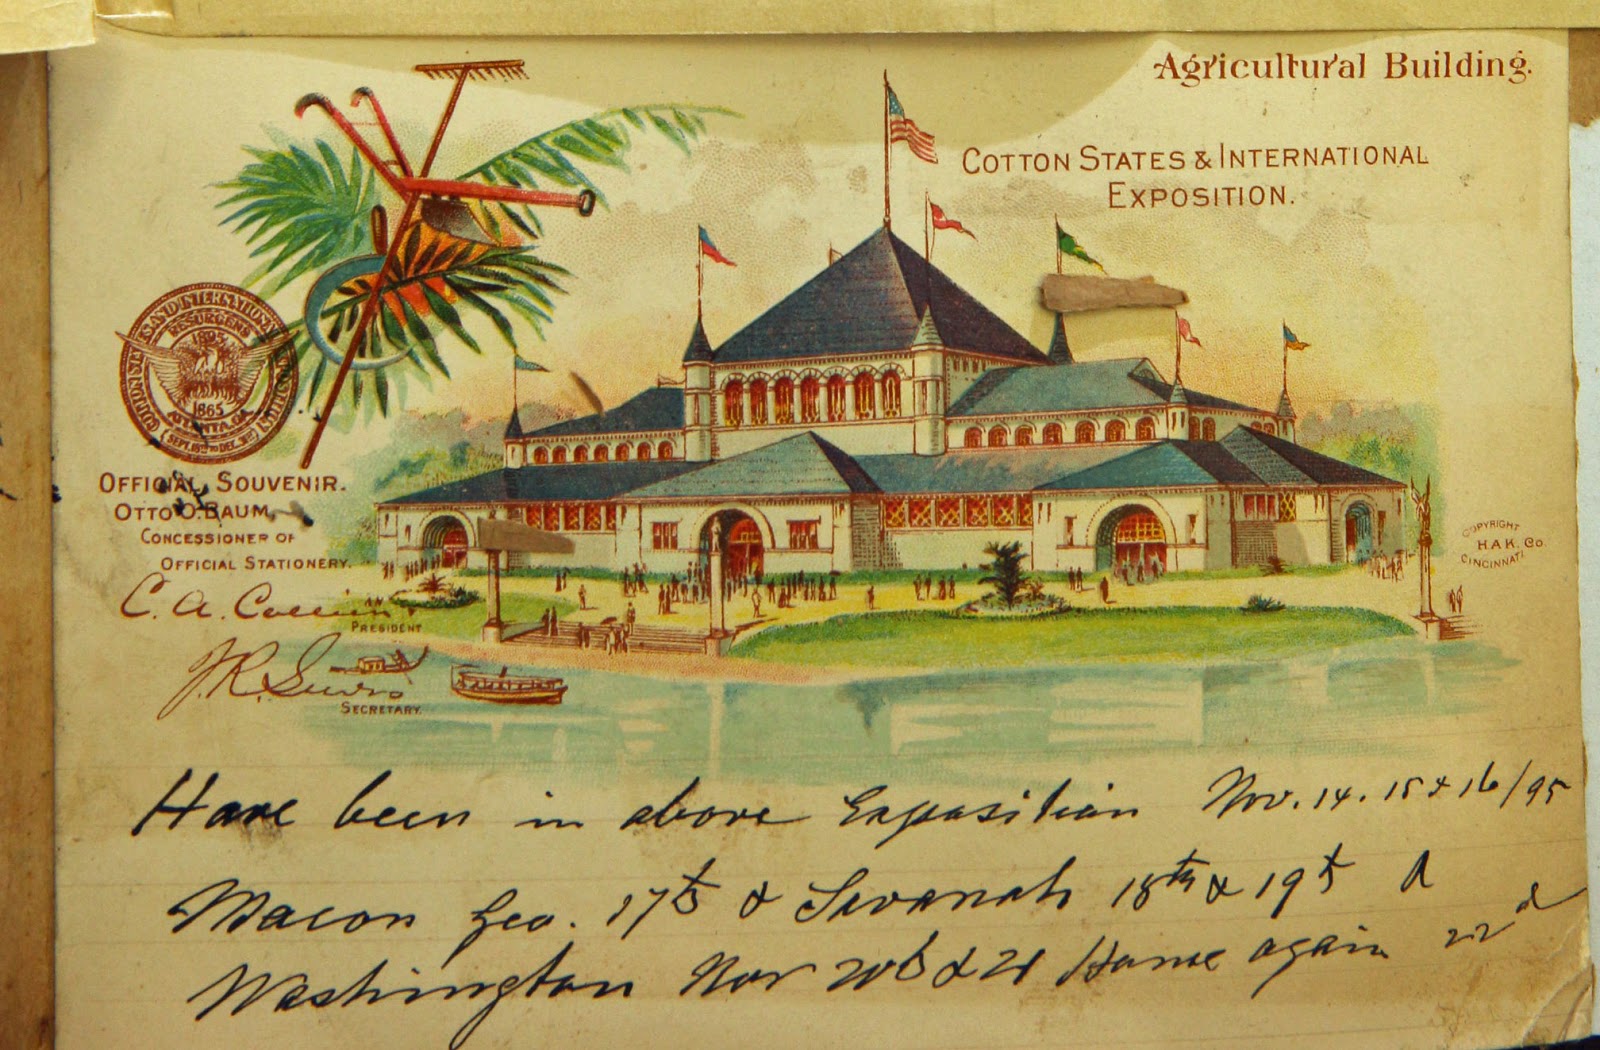 Agricultural Building.
COTTON STATES & INTERNATIONAL
EXPOSITION.
COTTON STATES AND INTERNATIONAL EXPOSITION
RESURGENS
1895
1865
ATLANTA, GA.
SEPT. 18TH TO DEC. 31ST
OFFICIAL SOUVENIR.
OTTO O. BAUM,
CONCESSIONER OF
OFFICIAL STATIONERY.
C. A. Collier
PRESIDENT
J. R.
SECRETARY.
COPYRIGHT
H.A.K. Co.
CINCINNATI.
Have been in above Exposition Nov. 14. 15 & 16/95
Macon Geo. 17th & Savanah 18th & 19th &
Washington Nov 20th & 21 Home again 22d